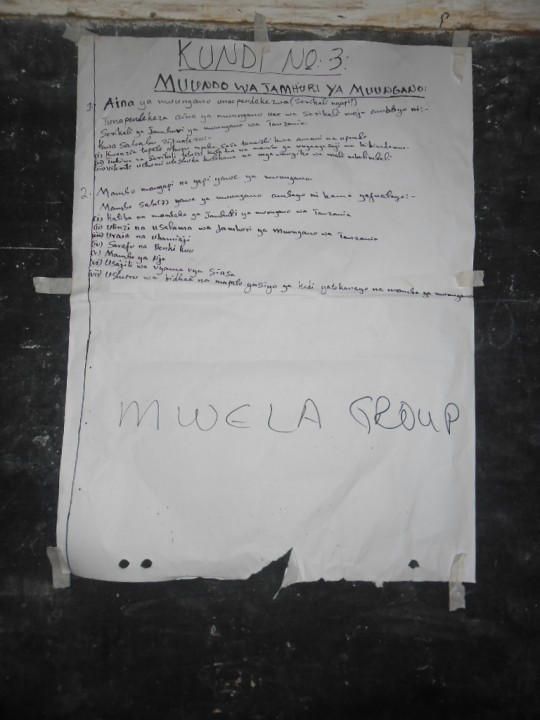 KUNDI NO. 3:
MUUNDO WA JAMHURI YA MUUNGANO:
1. Aina ya muungano unaopendekezwa (Serikali ngapi?)
Tunapendekeza aina ya muungano uwe wa Serikali moja ambayo ni:-
Serikali ya Jamhuri ya muungano wa Tanzania
Kwa Sababu zifuatazo:-
2. Mambo mangapi na yapi yawe ya muungano
Mambo Saba (7) yawe ya muungano ambayo ni kama yafuatayo:-
(i) Katiba na mamlaka ya Jamhuri ya muungano wa Tanzania
(ii) Ulinzi na Usalama wa Jamhuri ya Muungano wa Tanzania
(iii) Uraia na Uhamiaji
(iv) Sarafu na Benki Kuu
(v) Mambo ya Nje
(vi) Usajili wa vyama vya Siasa
(vii) Ushuru wa bidhaa na mapato yasiyo ya kodi yatokanayo na mambo ya muungano
MWELA GROUP